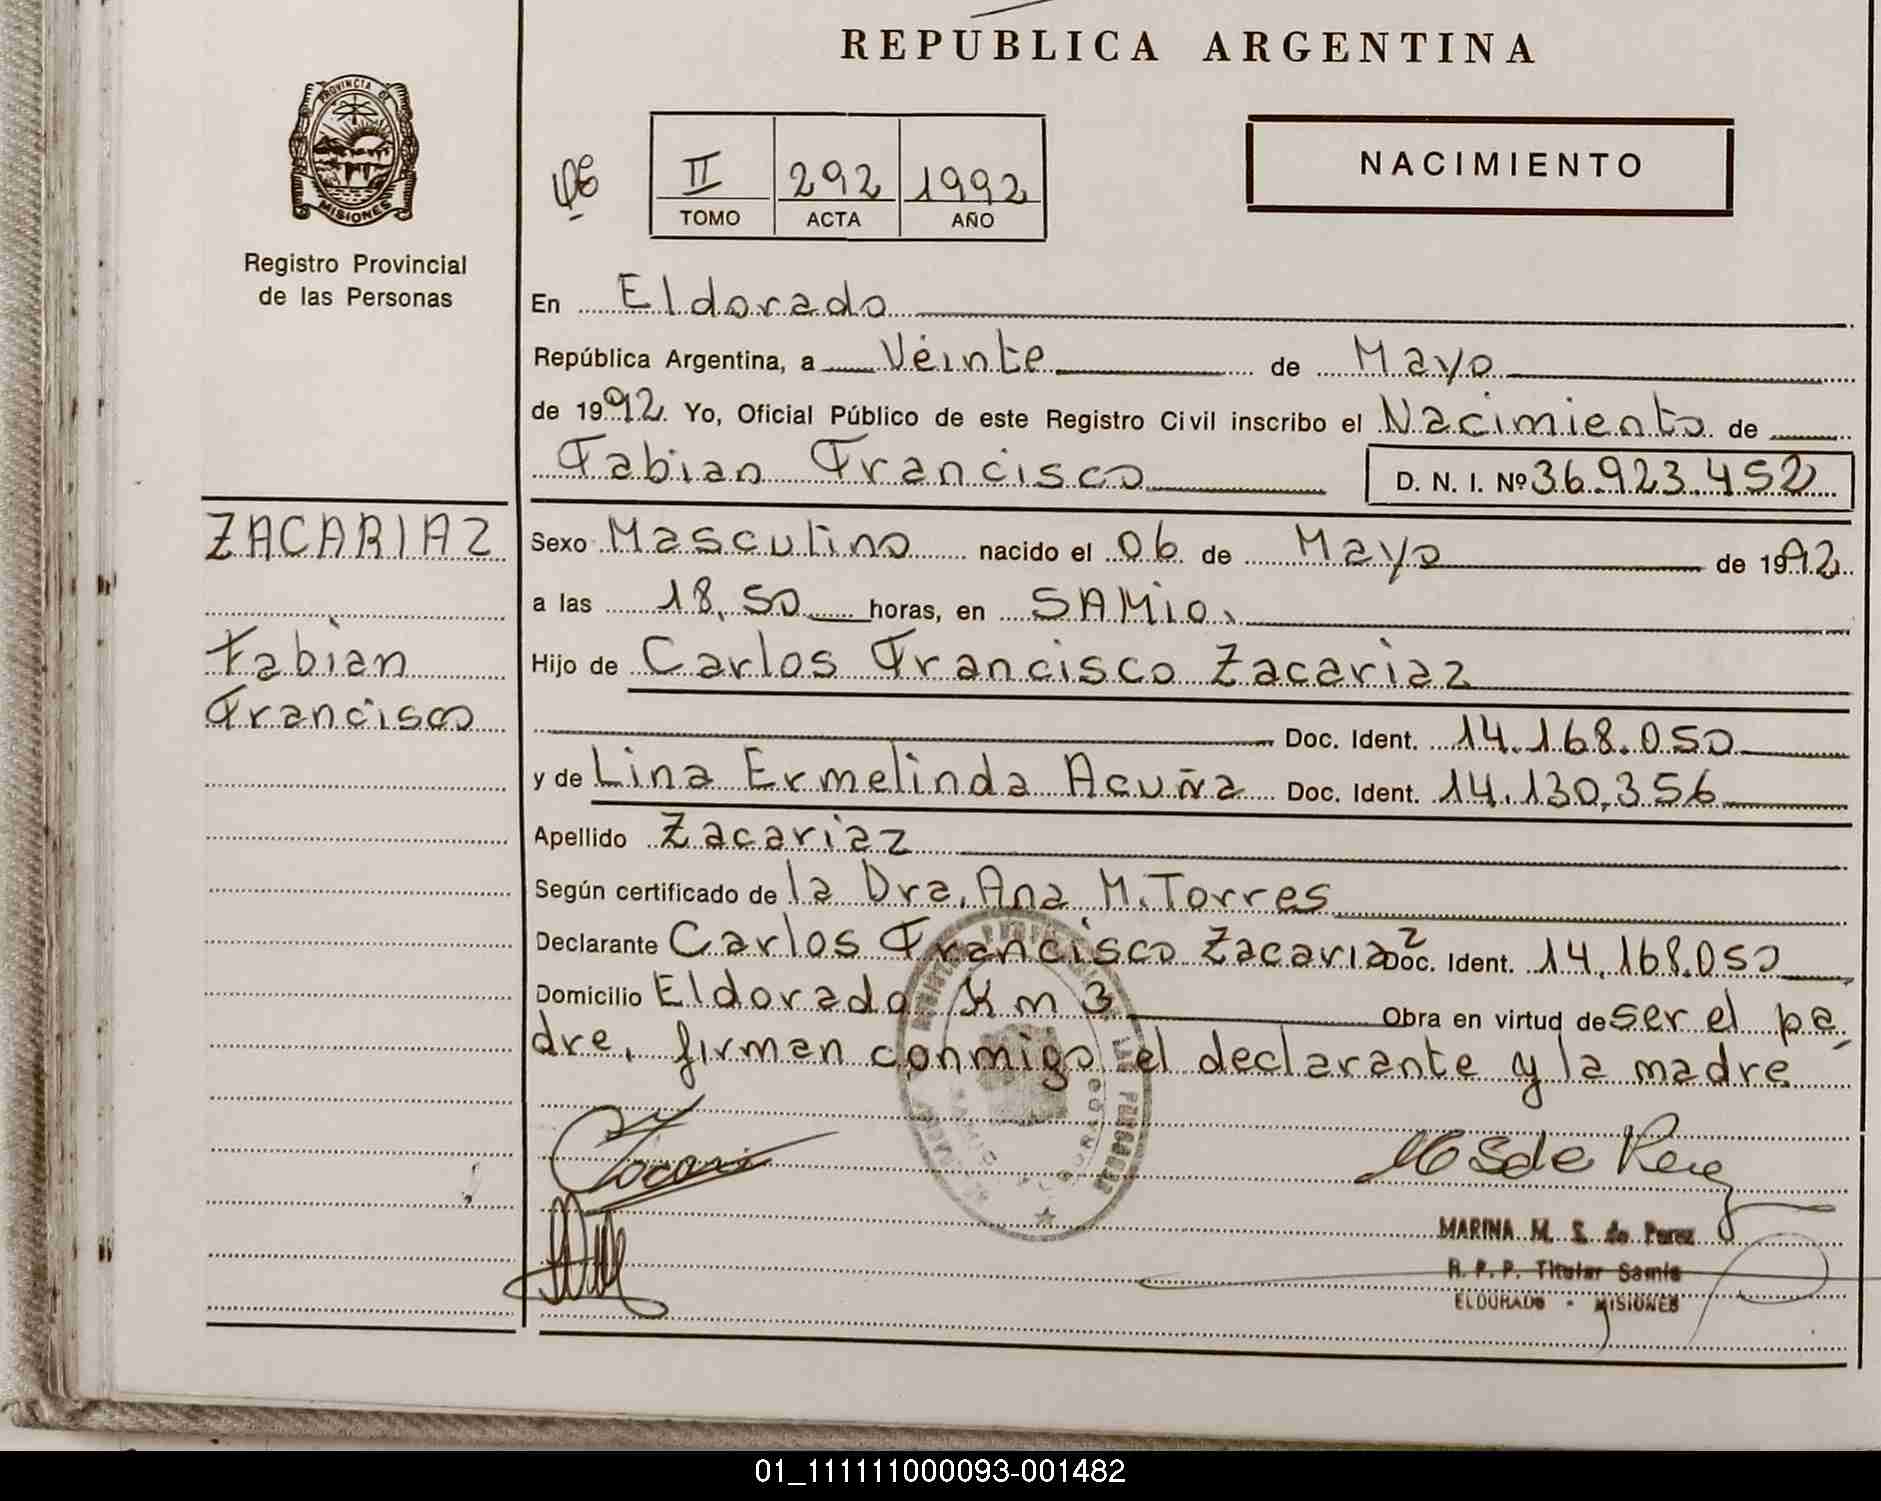 REPUBLICA ARGENTINA
PROVINCIA DE
MISIONES
Registro Provincial
de las Personas
II 292 1992
TOMO ACTA AÑO
NACIMIENTO
En Eldorado
República Argentina, a Veinte de Mayo
de 1992. Yo, Oficial Público de este Registro Civil inscribo el Nacimiento de
Fabian Francisco D. N. I. Nº 36.923.452
ZACARIAZ
Fabian
Francisco
Sexo Masculino nacido el 06 de Mayo de 1992
a las 18,50 horas, en SAMiO.
Hijo de Carlos Francisco Zacariaz
Doc. Ident. 14.168.050
y de Lina Ermelinda Acuña Doc. Ident. 14.130,356
Apellido Zacariaz
Según certificado de la Dra. Ana M. Torres
Declarante Carlos Francisco Zacariaz Doc. Ident. 14.168.050
Domicilio Eldorado Km 3 Obra en virtud de ser el pa
dre, firman conmigo el declarante y la madre
MARINA M. S. de Perez
R. P. P. Titular Samio
ELDORADO - MISIONES
01_111111000093-001482